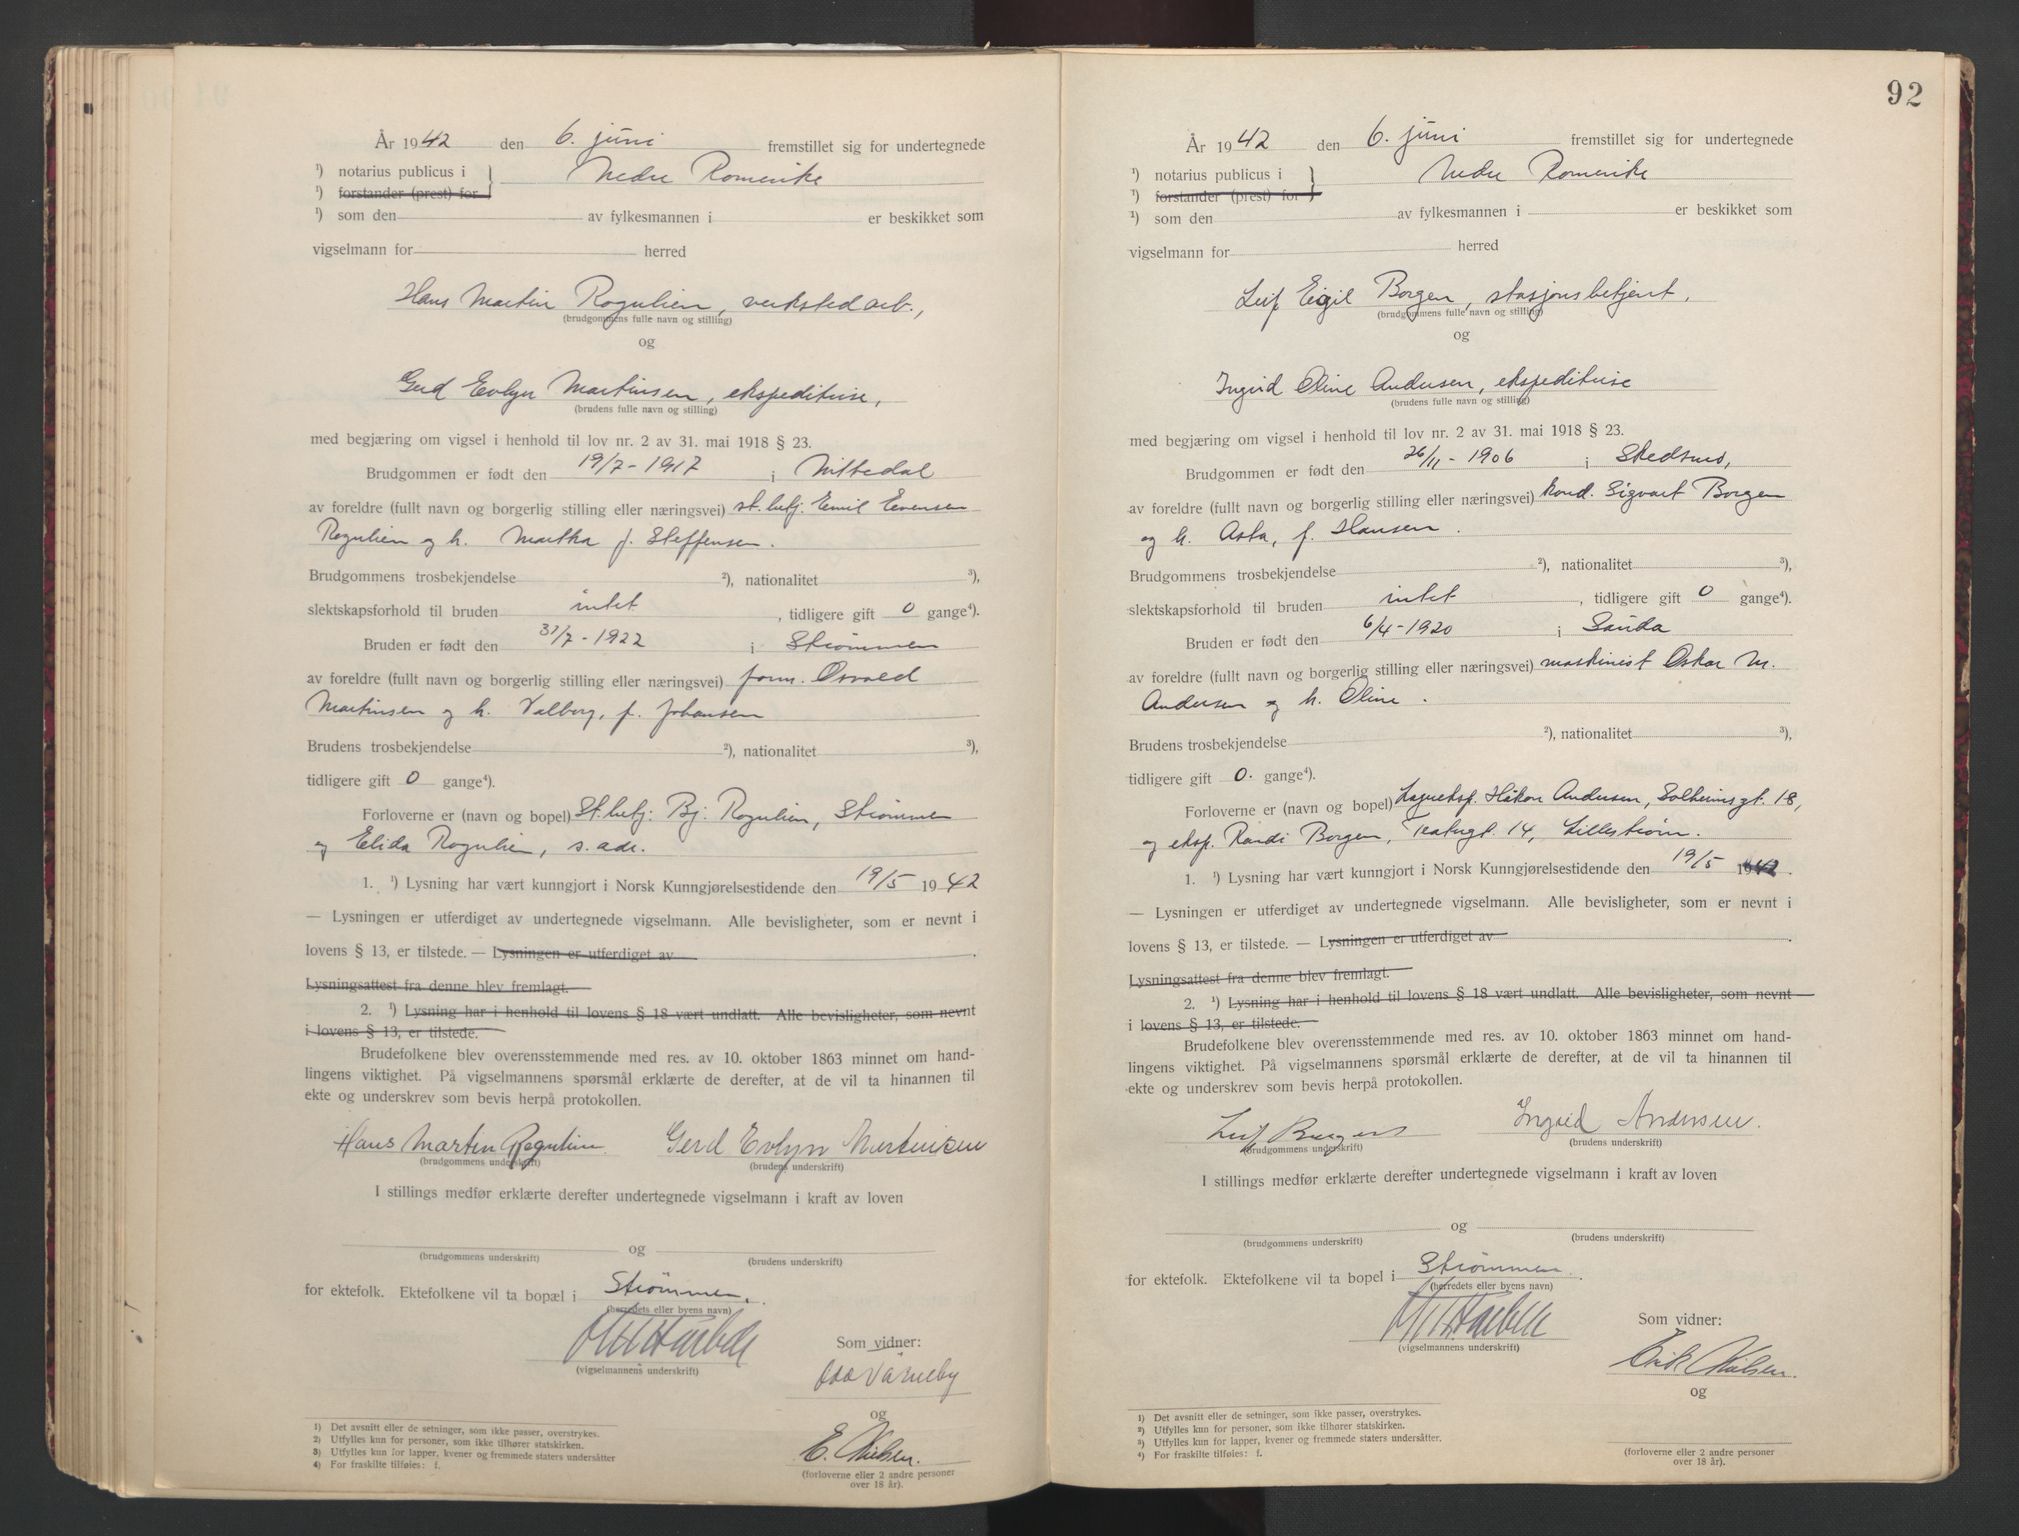 År 1942 den 6. juni fremstillet sig for undertegnede
¹) notarius publicus i } Nedre Romerike
¹) forstander (prest) for
¹) som den av fylkesmannen i er beskikket som
vigselmann for herred
Hans Martin Rogulien, verksted arb.,
(brudgommens fulle navn og stilling)
og
Gerd Evlyn Martinsen, ekspeditrise,
(brudens fulle navn og stilling)
med begjæring om vigsel i henhold til lov nr. 2 av 31. mai 1918 § 23.
Brudgommen er født den 19/7-1917 i Nittedal
av foreldre (fullt navn og borgerlig stilling eller næringsvei) st.betj. Emil Evensen
Rogulien og h. Martha f. Steffensen.
Brudgommens trosbekjendelse ²), nationalitet ³),
slektskapsforhold til bruden intet, tidligere gift 0 gange⁴).
Bruden er født den 31/7-1922 i Strømmen
av foreldre (fullt navn og borgerlig stilling eller næringsvei) form. Osvald
Martinsen og h. Valborg, f. Johansen
Brudens trosbekjendelse ²), nationalitet ³),
tidligere gift 0 gange⁴).
Forloverne er (navn og bopel) St.betj. Bj. Rogulien, Strømmen
og Elida Rogulien, s. adr.
1. ¹) Lysning har vært kunngjort i Norsk Kunngjørelsestidende den 19/5 1942
— Lysningen er utferdiget av undertegnede vigselmann. Alle bevisligheter, som er nevnt i
lovens § 13, er tilstede. — Lysningen er utferdiget av .
Lysningsattest fra denne blev fremlagt.
2. ¹) Lysning har i henhold til lovens § 18 vært undlatt. Alle bevisligheter, som nevnt
i lovens § 13, er tilstede.
Brudefolkene blev overensstemmende med res. av 10. oktober 1863 minnet om hand-
lingens viktighet. På vigselmannens spørsmål erklærte de derefter, at de vil ta hinannen til
ekte og underskrev som bevis herpå protokollen.
Hans Martin Rogulien Gerd Evlyn Martinsen
(brudgommens underskrift) (brudens underskrift)
I stillings medfør erklærte derefter undertegnede vigselmann i kraft av loven
og
(brudgommens underskrift) (brudens underskrift)
for ektefolk. Ektefolkene vil ta bopæl i Strømmen.
(herredets eller byens navn)
Som vidner:
(vigselmannens underskrift)
Värneby
og
E. Nielsen.
(forloverne eller 2 andre personer
over 18 år).
1) Det avsnitt eller de setninger, som ikke passer, overstrykes.
2) Utfylles kun for personer, som ikke tilhører statskirken.
3) Utfylles kun for lapper, kvener og fremmede staters undersåtter
4) For fraskilte tilføies: f.
92
År 1942 den 6. juni fremstillet sig for undertegnede
¹) notarius publicus i } Nedre Romerike
¹) forstander (prest) for
¹) som den av fylkesmannen i er beskikket som
vigselmann for herred
Leif Eigil Borgen, stasjonsbetjent.
(brudgommens fulle navn og stilling)
og
Ingrid Oline Andersen, ekspeditrise
(brudens fulle navn og stilling)
med begjæring om vigsel i henhold til lov nr. 2 av 31. mai 1918 § 23.
Brudgommen er født den 26/11-1906 i Skedsmo,
av foreldre (fullt navn og borgerlig stilling eller næringsvei) kond. Sigvart Borgen
og h. Asta, f. Hansen.
Brudgommens trosbekjendelse ²), nationalitet ³),
slektskapsforhold til bruden intet, tidligere gift 0 gange⁴).
Bruden er født den 6/4-1920 i Sauda
av foreldre (fullt navn og borgerlig stilling eller næringsvei) maskinist Oskar M.
Andersen og h. Oline.
Brudens trosbekjendelse ²), nationalitet ³),
tidligere gift 0. gange⁴).
Forloverne er (navn og bopel) Lagereksp. Håkon Andersen, Solheimsgt. 18,
og eksp. Randi Borgen, Teatergt. 14, Lillestrøm.
1. ¹) Lysning har vært kunngjort i Norsk Kunngjørelsestidende den 19/5 1942.
— Lysningen er utferdiget av undertegnede vigselmann. Alle bevisligheter, som er nevnt i
lovens § 13, er tilstede. — Lysningen er utferdiget av .
Lysningsattest fra denne blev fremlagt.
2. ¹) Lysning har i henhold til lovens § 18 vært undlatt. Alle bevisligheter, som nevnt
i lovens § 13, er tilstede.
Brudefolkene blev overensstemmende med res. av 10. oktober 1863 minnet om hand-
lingens viktighet. På vigselmannens spørsmål erklærte de derefter, at de vil ta hinannen til
ekte og underskrev som bevis herpå protokollen.
Leif Borgen Ingrid Andersen.
(brudgommens underskrift) (brudens underskrift)
I stillings medfør erklærte derefter undertegnede vigselmann i kraft av loven
og
(brudgommens underskrift) (brudens underskrift)
for ektefolk. Ektefolkene vil ta bopel i Strømmen.
(herredets eller byens navn)
Som vidner:
(vigselmannens underskrift)
Erik Nielsen.
og
(forloverne eller 2 andre personer
over 18 år).
1) Det avsnitt eller de setninger, som ikke passer, overstrykes.
2) Utfylles kun for personer, som ikke tilhører statskirken.
3) Utfylles kun for lapper, kvener og fremmede staters undersåtter.
4) For fraskilte tilføies: f.